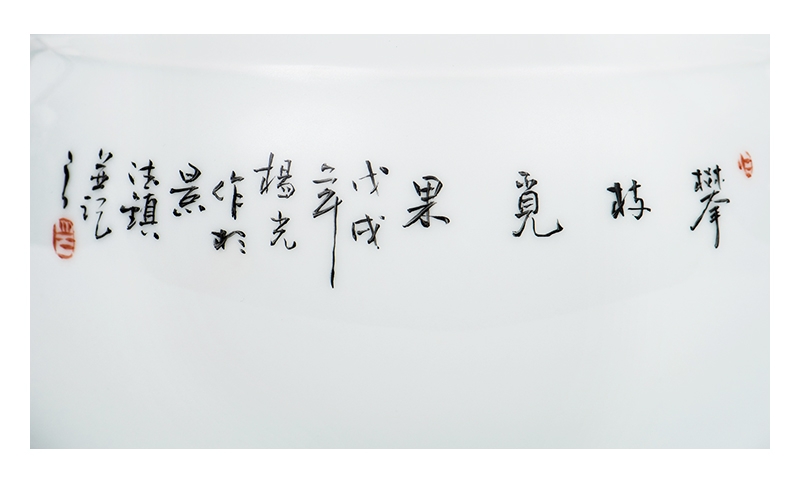 攀枝覓果
戊戌
年
楊光
作於
景
德鎮
並記